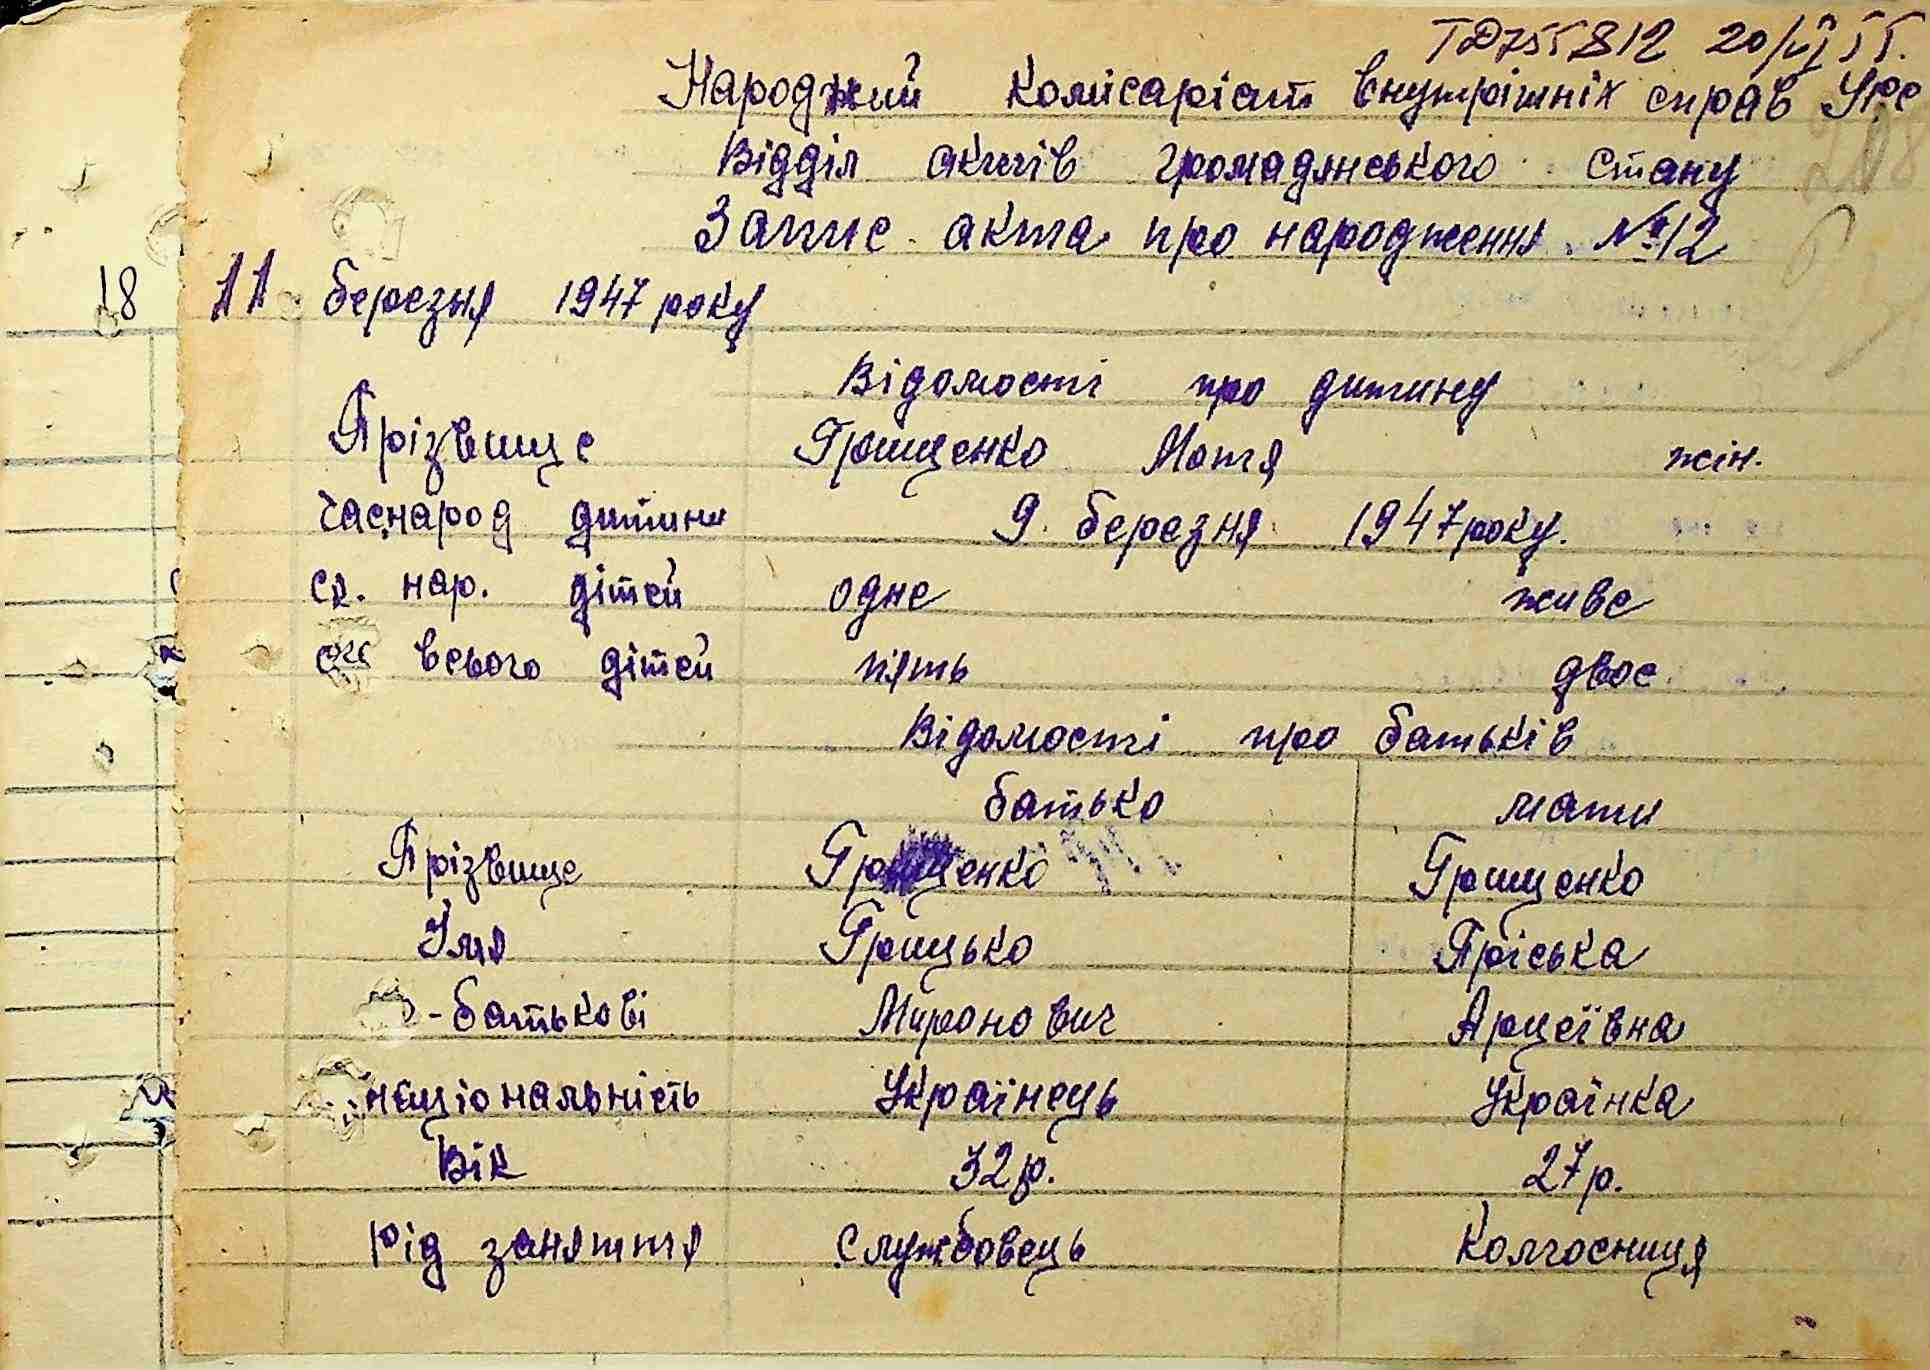 20/VI 55.
Народний комісаріат внутрішніх справ УРС
Відділ актів громадянського стану
Запис акта про народження №12
18 11 березня 1947 року
Відомості про дитину
Прізвище Грищенко Мотя жін.
Час народ дитини 9 березня 1947 року.
ск. нар. дітей одне живе
ск всього дітей пять двое
Відомості про батьків
батько мати
Прізвище Грищенко Грищенко
Імя Грицько Пріська
по-батькові Миронович Арцеївна
національність Українець Українка
Вік 32 р. 27 р.
Рід заняття службовець Колгосниця